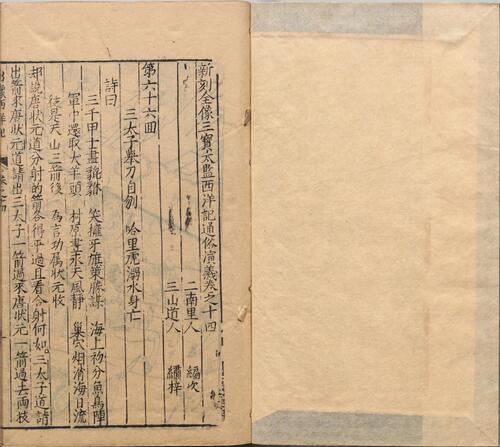 新刻全像三寶太監西洋記通俗演義卷之十四
二南里人　編次
三山道人　繡梓
第六十六回
三太子舉刀自刎　哈里虎溺水身亡
詩曰
三千甲士盡貔貅　笑擁牙旗策勝謀　海上初分魚鳥陣
軍中還取大羊頭　村原䨇永天風靜　巢穴烟消海日流
從是天山三箭後　為言功屬狀元收
却說唐狀元道分射的箭各得平過且看合射何如三太子道請
出箭來唐狀元道請出三太子一箭過來唐狀元一箭過去兩枝